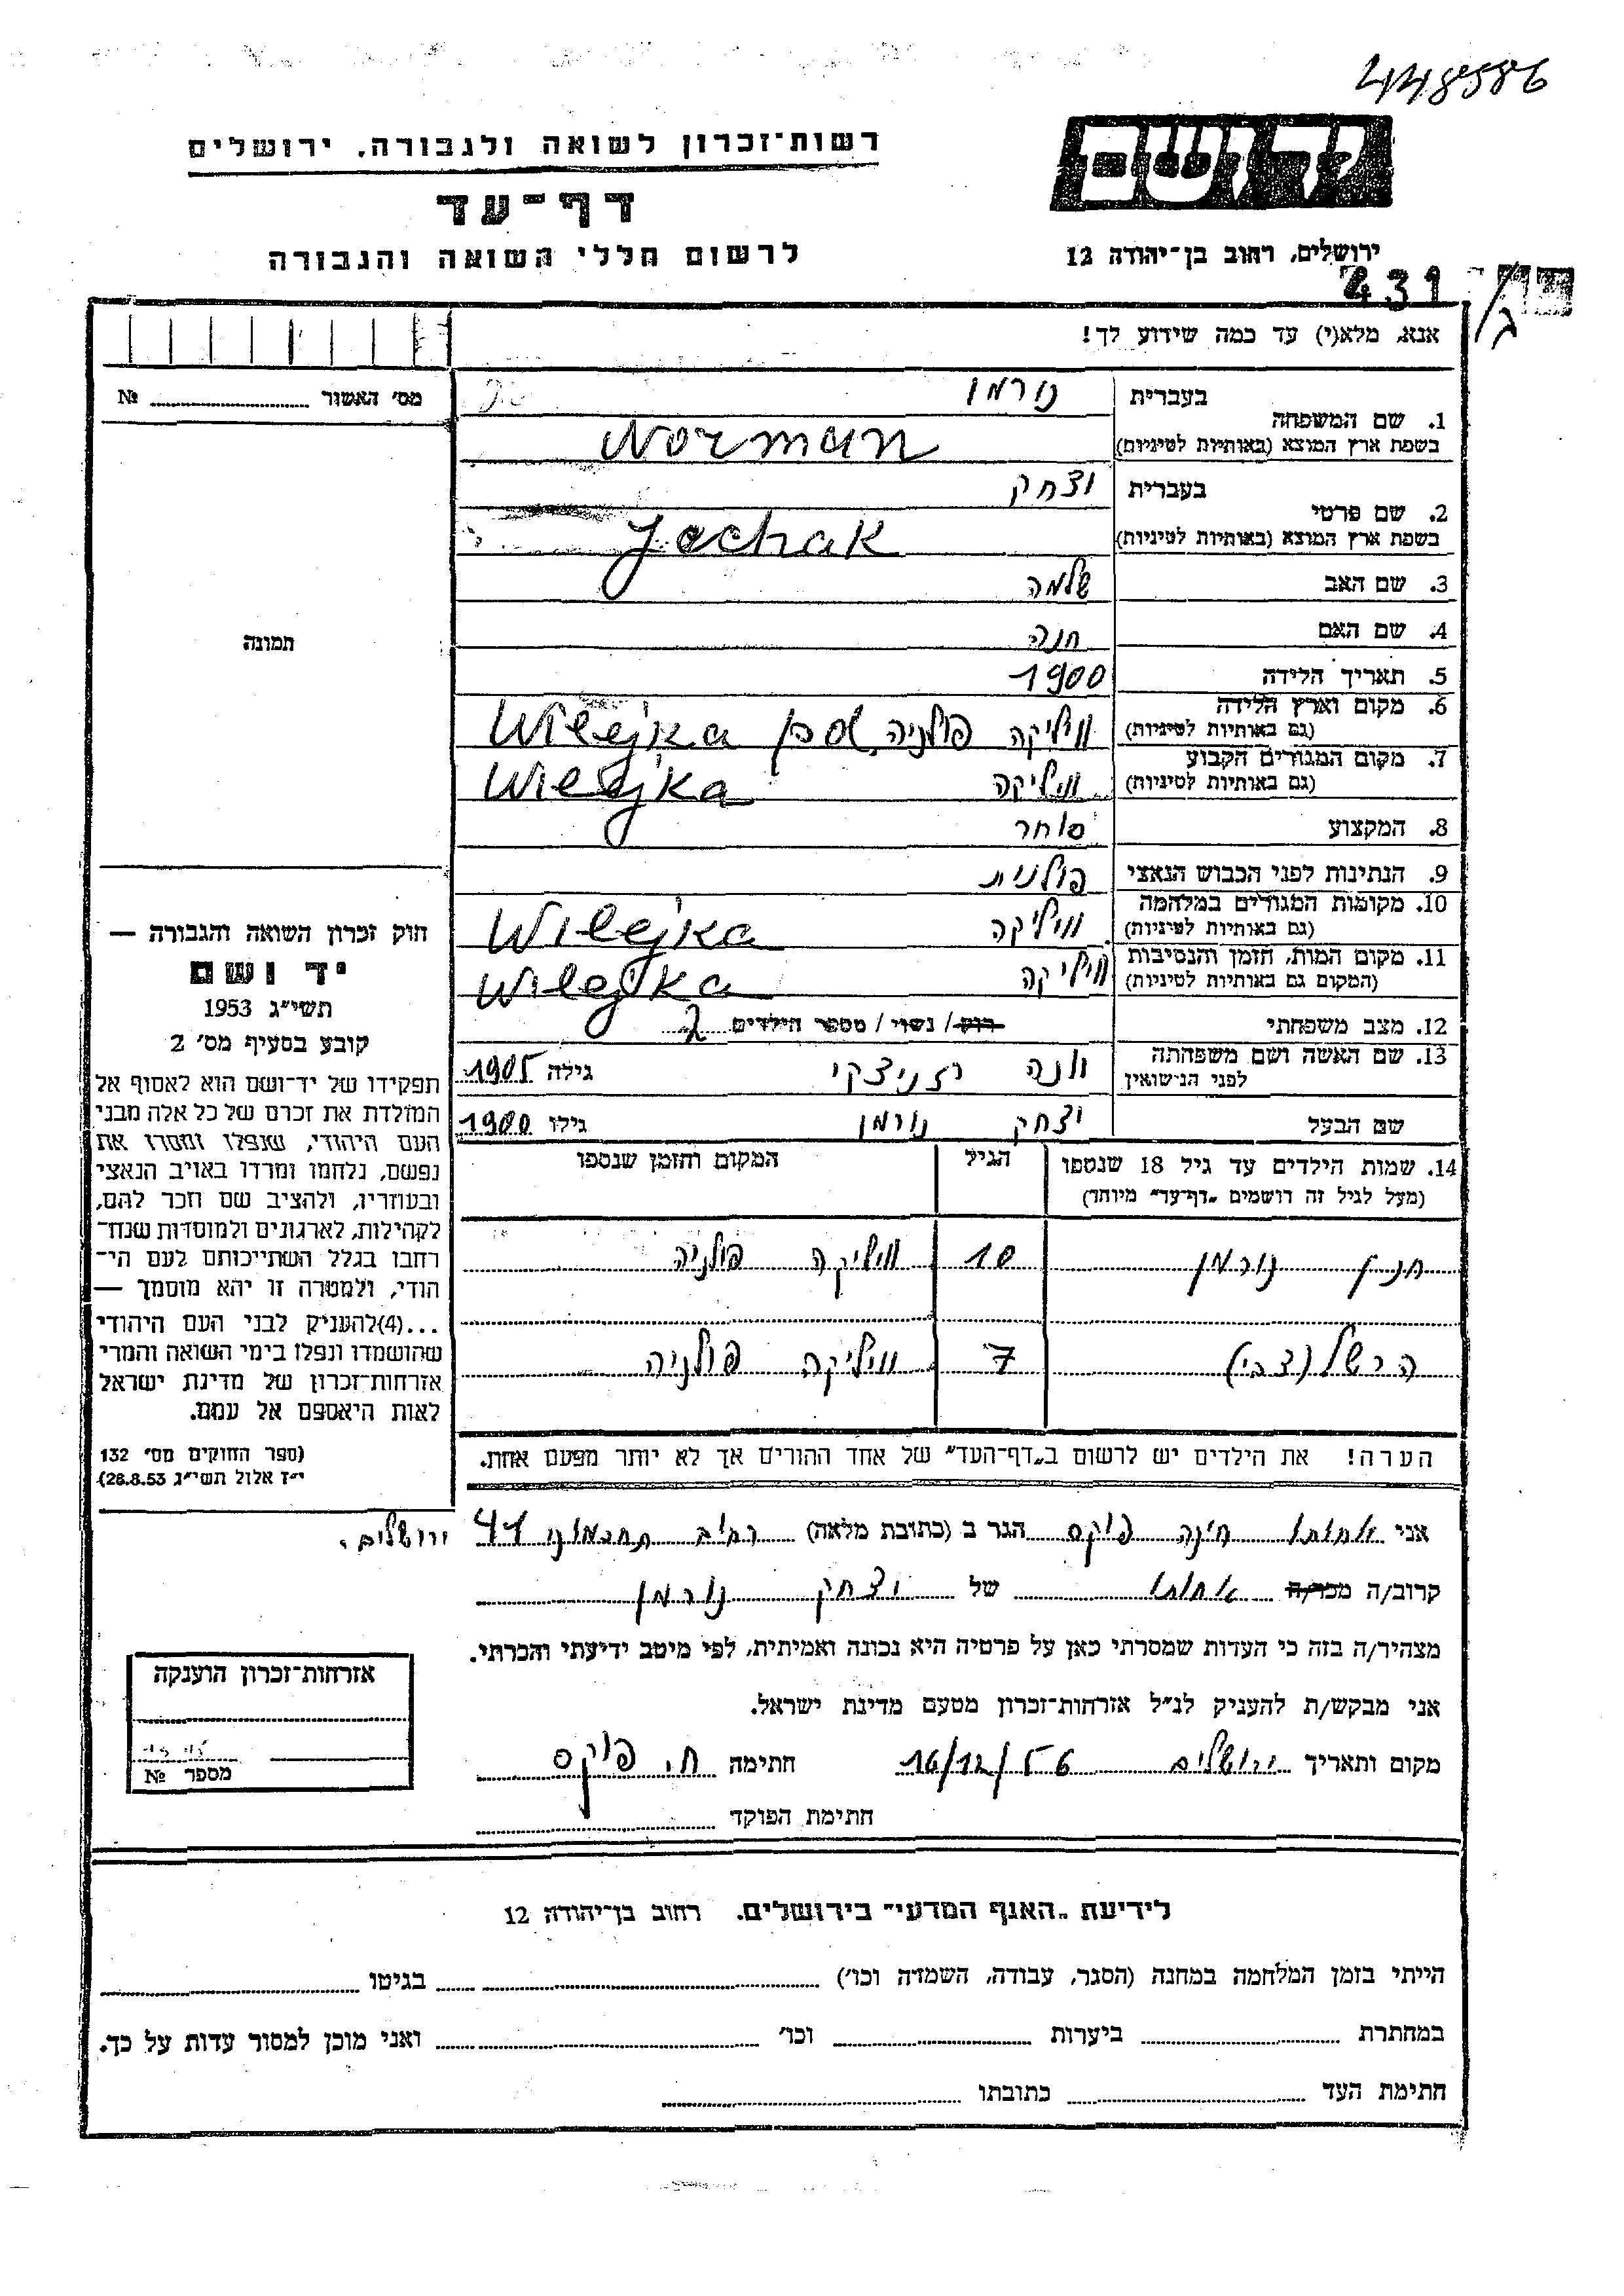 448586
רשות־זכרון לשואה ולגבורה. ירושלים
דף־עד
לרשום חללי השואה והגבורה
ידושם
ירושלים, רחוב בן־יהודה 12
431
אנא, מלא(י) עד כמה שידוע לך!
מס' האשור № 
1. שם המשפחה
בעברית נורמן
בשפת ארץ המוצא (באותיות לטיניות) Norman
2. שם פרטי
בעברית יצחק
בשפת ארץ המוצא (באותיות לטיניות) Jechak
3. שם האב שלמה
4. שם האם חנה
5. תאריך הלידה 1900
6. מקום וארץ הלידה (גם באותיות לטיניות) וויליקה פולניה Wilejka pol
7. מקום המגורים הקבוע (גם באותיות לטיניות) וויליקה Wilejka
8. המקצוע סוחר
9. הנתינות לפני הכבוש הנאצי פולנית
10. מקומות המגורים במלחמה (גם באותיות לטיניות) וויליקה Wilejka
11. מקום המות, הזמן והנסיבות (המקום גם באותיות לטיניות) וויליקה Wilejka
12. מצב משפחתי רוק / נשוי / מספר הילדים 2
13. שם האשה ושם משפחתה לפני הנישואין רזניצקי גילה 1905
שם הבעל יצחק נורמן גילו 1900
14. שמות הילדים עד גיל 18 שנספו
(מעל לגיל זה רושמים „דף־עד" מיוחד)
הגיל
המקום והזמן שנספו
נורמן 10 וויליקה פולניה
הרשל (צבי) 7 וויליקה פולניה
הערה! את הילדים יש לרשום ב„דף־העד" של אחד ההורים אך לא יותר מפעם אחת.
תמונה
חוק זכרון השואה והגבורה —
יד ושם
תשי"ג 1953
קובע בסעיף מס' 2
תפקידו של יד־ושם הוא לאסוף אל
המולדת את זכרם של כל אלה מבני
העם היהודי, שנפלו ומסרו את
נפשם, נלחמו ומרדו באויב הנאצי
ובעוזריו, ולהציב שם וזכר להם,
לקהילות, לארגונים ולמוסדות שנח־
רחבו בגלל השתייכותם לעם הי־
הודי, ולמטרה זו יהא מוסמך —
...(4)להעניק לבני העם היהודי
שהושמדו ונפלו בימי השואה והמרי
אזרחות־זכרון של מדינת ישראל
לאות היאספם אל עמם.
(ספר החוקים מס' 132
י"ז אלול תשי"ג 28.8.53)
אני אחותו חינה פוקס הגר ב (כתובת מלאה) רחוב תחכמוני 41 ירושלים.
קרוב/ה מכר/ה אחותו של יצחק נורמן
מצהיר/ה בזה כי העדות שמסרתי כאן על פרטיה היא נכונה ואמיתית, לפי מיטב ידיעתי והכרתי.
אני מבקש/ת להעניק לנ"ל אזרחות־זכרון מטעם מדינת ישראל.
מקום ותאריך ירושלים 16/12/56 חתימה ח. פוקס
חתימת הפוקד
אזרחות־זכרון הוענקה
מספר №
לידיעת „האגף המדעי" בירושלים. רחוב בן־יהודה 12
הייתי בזמן המלחמה במחנה (הסגר, עבודה, השמדה וכו') בגיטו
במחתרת ביערות וכו' ואני מוכן למסור עדות על כך.
חתימת העד כתובתו